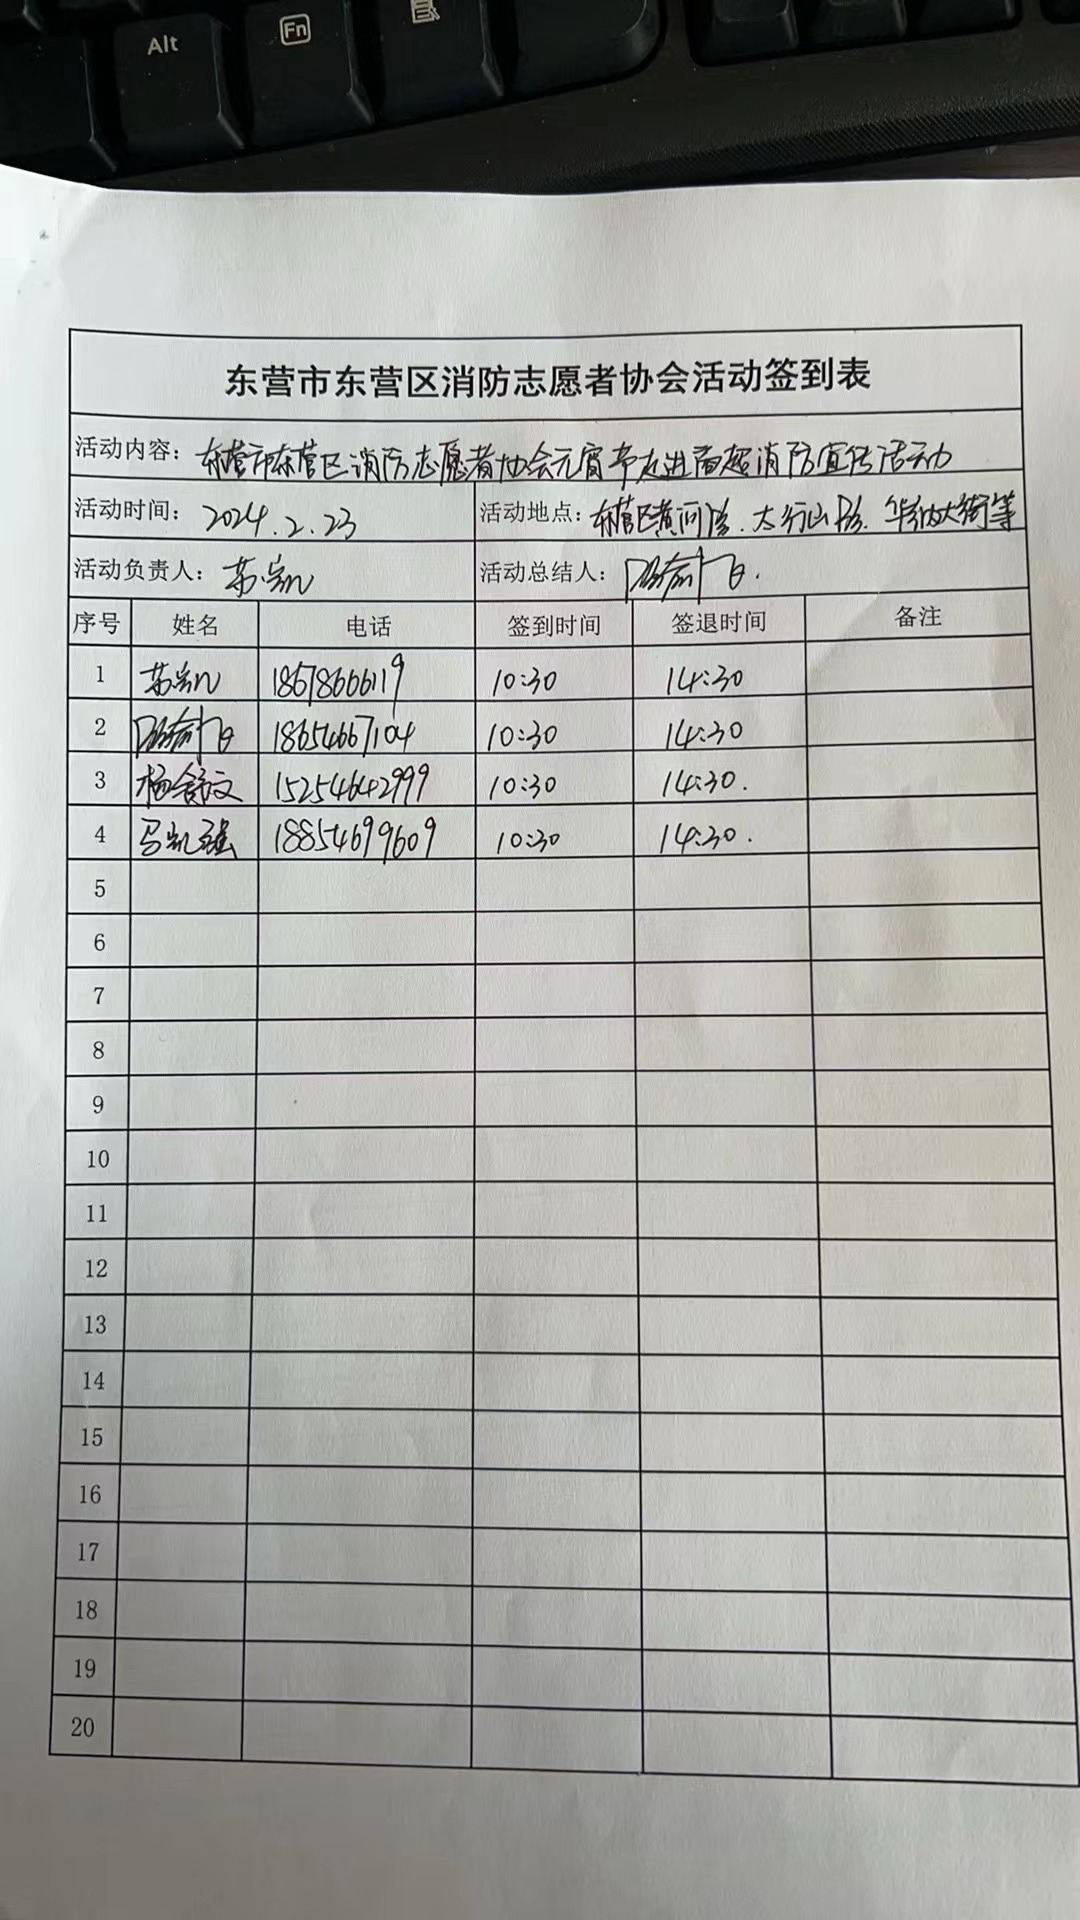 Alt
Fn
东营市东营区消防志愿者协会活动签到表
活动内容：东营市东营区消防志愿者协会元宵节走进商超消防宣传活动
活动时间：2024.2.23 活动地点：东营区黄河路、太行山路、华纳大街等
活动负责人： 活动总结人：
序号 姓名 电话 签到时间 签退时间 备注
1 18678666119 10:30 14:30
2 18654667104 10:30 14:30
3 杨舒文 15254642999 10:30 14:30.
4 马凯强 18854699609 10:30 14:30.
5
6
7
8
9
10
11
12
13
14
15
16
17
18
19
20